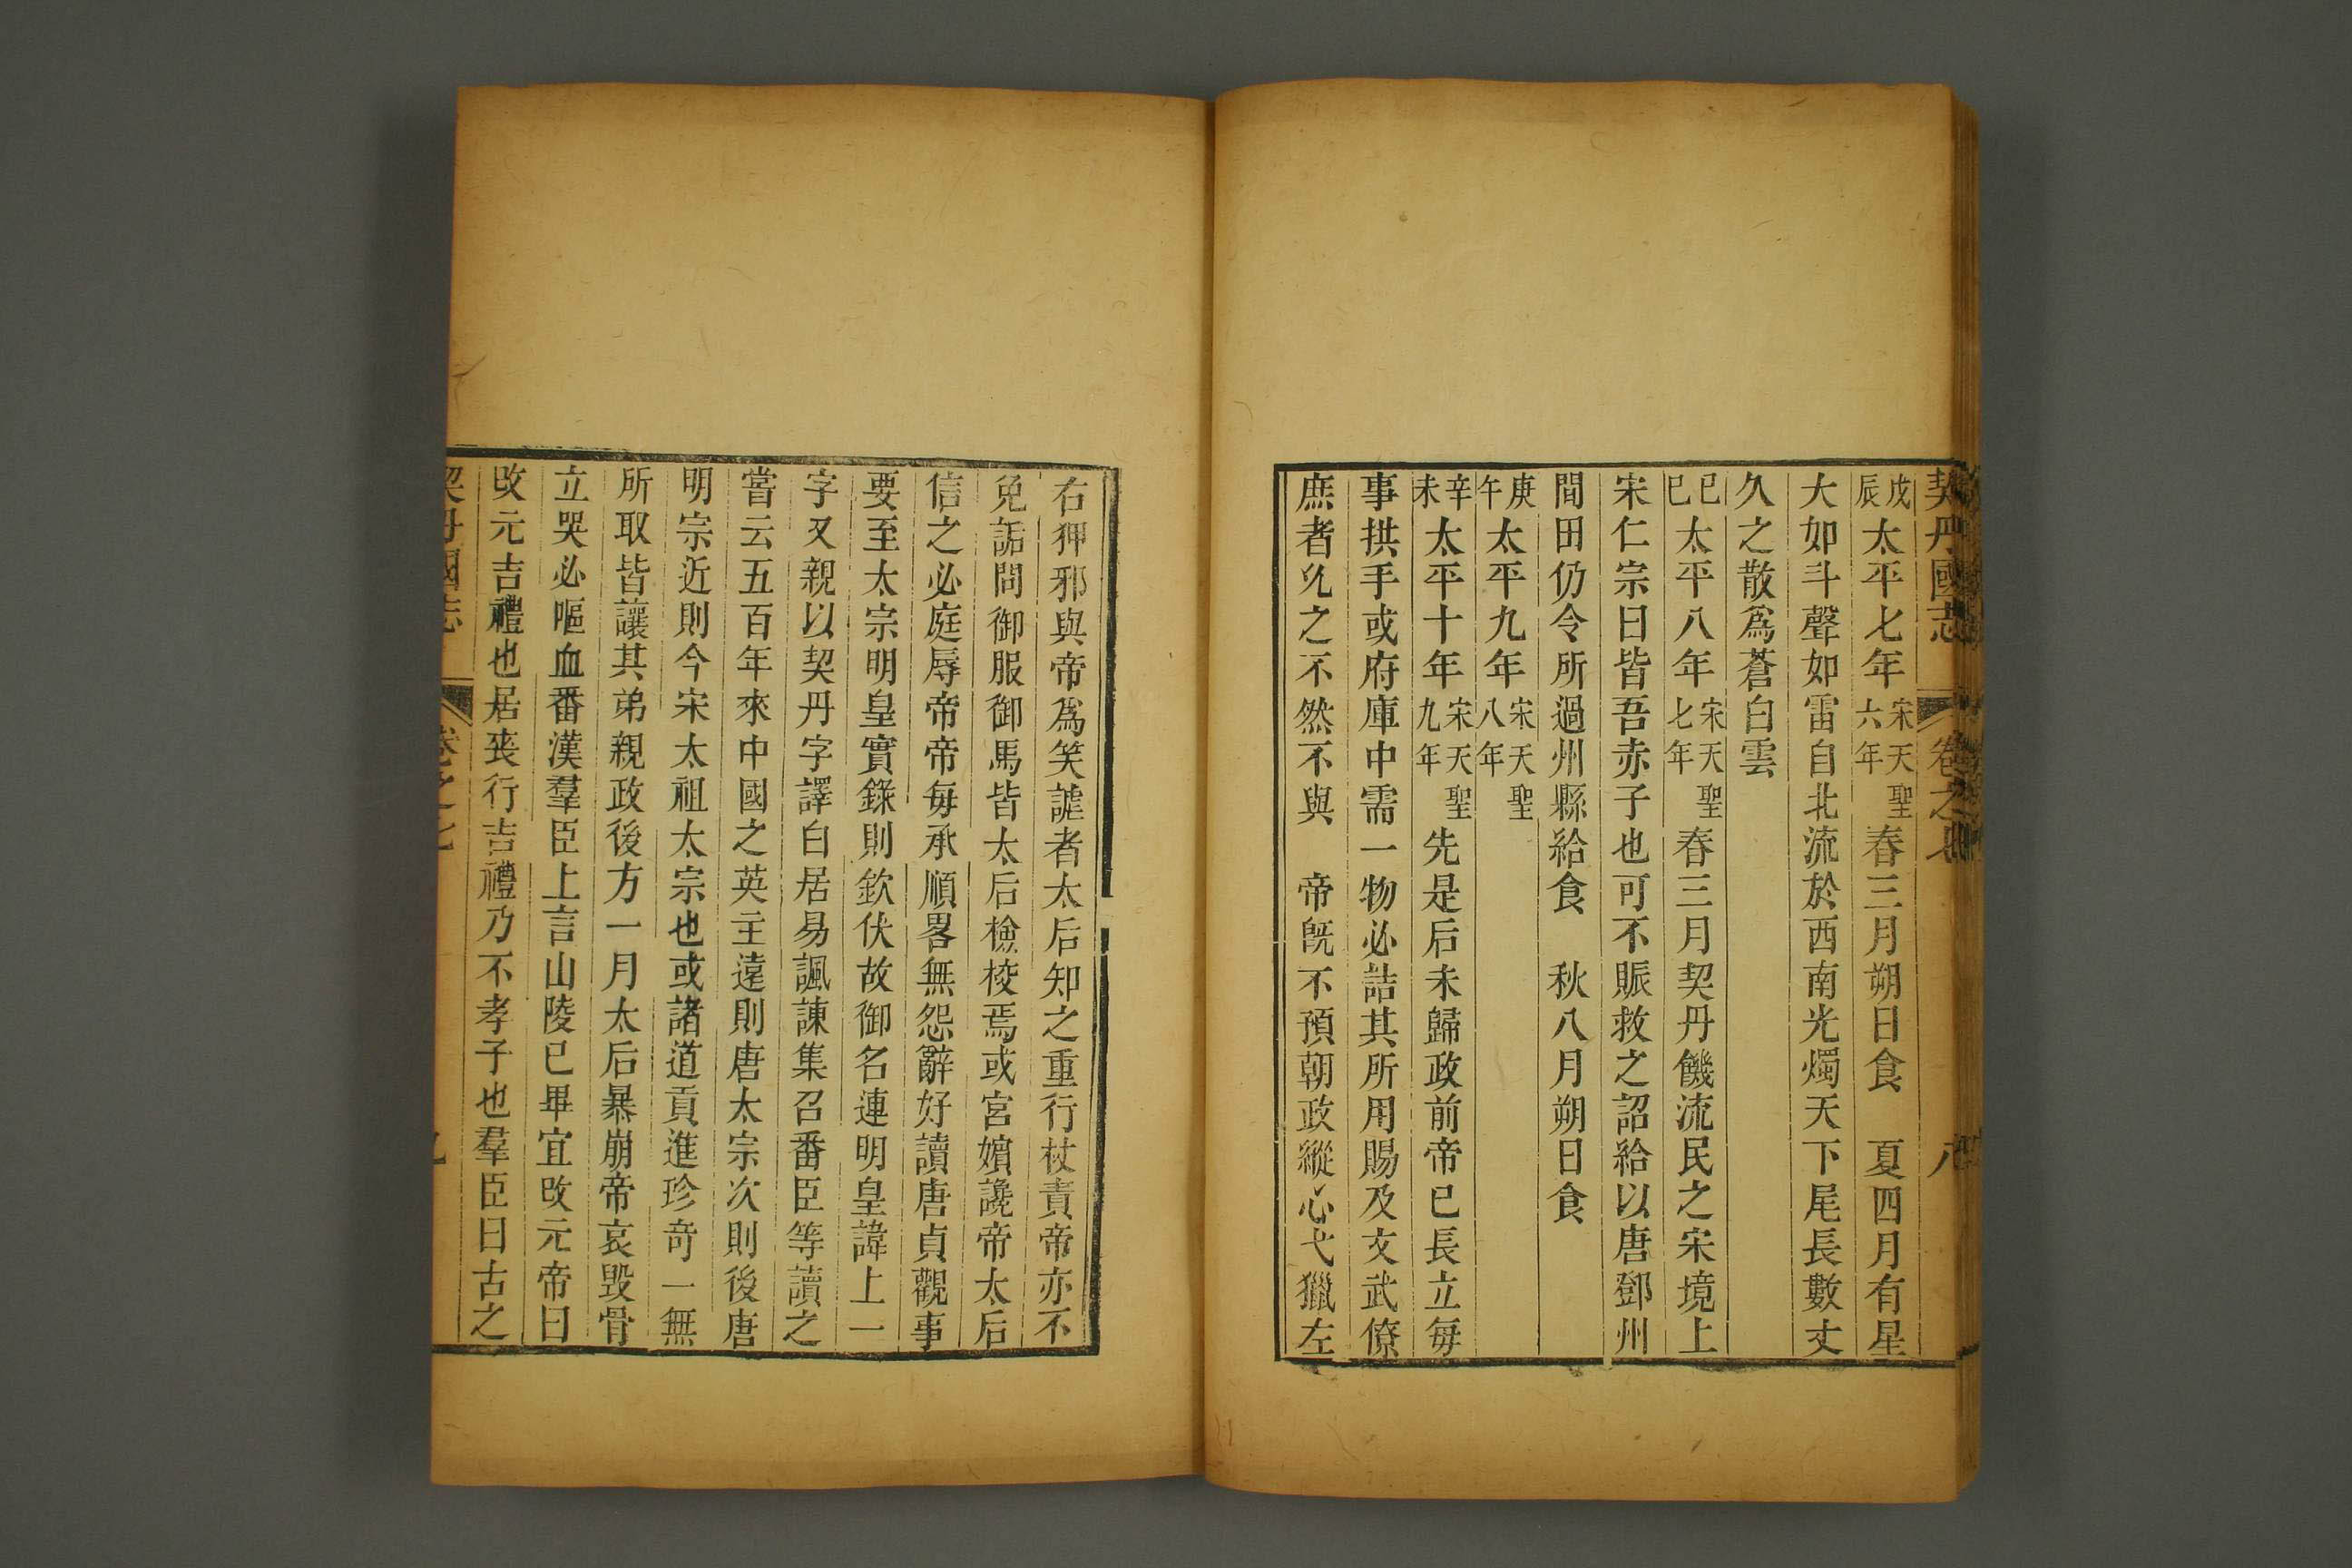 契丹國志 卷之七 八
戊辰太平七年宋天聖六年春三月朔日食 夏四月有星
大如斗聲如雷自北流於西南光燭天下尾長數丈
久之散爲蒼白雲
己巳太平八年宋天聖七年春三月契丹饑流民之宋境上
宋仁宗曰皆吾赤子也可不賑救之詔給以唐鄧州
間田仍令所過州縣給食 秋八月朔日食
庚午太平九年宋天聖八年
辛未太平十年宋天聖九年先是后未歸政前帝已長立每
事拱手或府庫中需一物必詰其所用賜及文武僚
庶者允之不然不與 帝旣不預朝政縱心弋獵左
右狎邪與帝爲笑謔者太后知之重行杖責帝亦不
免詬問御服御馬皆太后檢校焉或宮嬪讒帝太后
信之必庭辱帝帝每承順畧無怨辭好讀唐貞觀事
要至太宗明皇實錄則欽伏故御名連明皇諱上一
字又親以契丹字譯白居易諷諫集召番臣等讀之
嘗云五百年來中國之英主遠則唐太宗次則後唐
明宗近則今宋太祖太宗也或諸道貢進珍奇一無
所取皆讓其弟親政後方一月太后暴崩帝哀毀骨
立哭必嘔血番漢羣臣上言山陵已畢宜改元帝曰
改元吉禮也居喪行吉禮乃不孝子也羣臣曰古之
契丹國志 卷之七 九